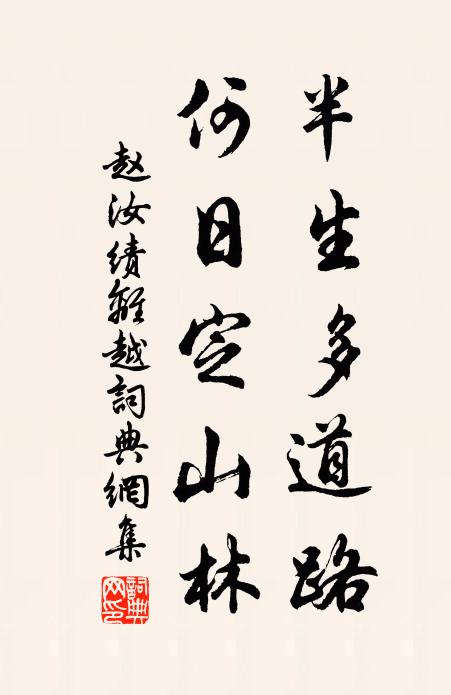 半生多道路
何日定山林
赵汝績離越詞典網集
詞典网印